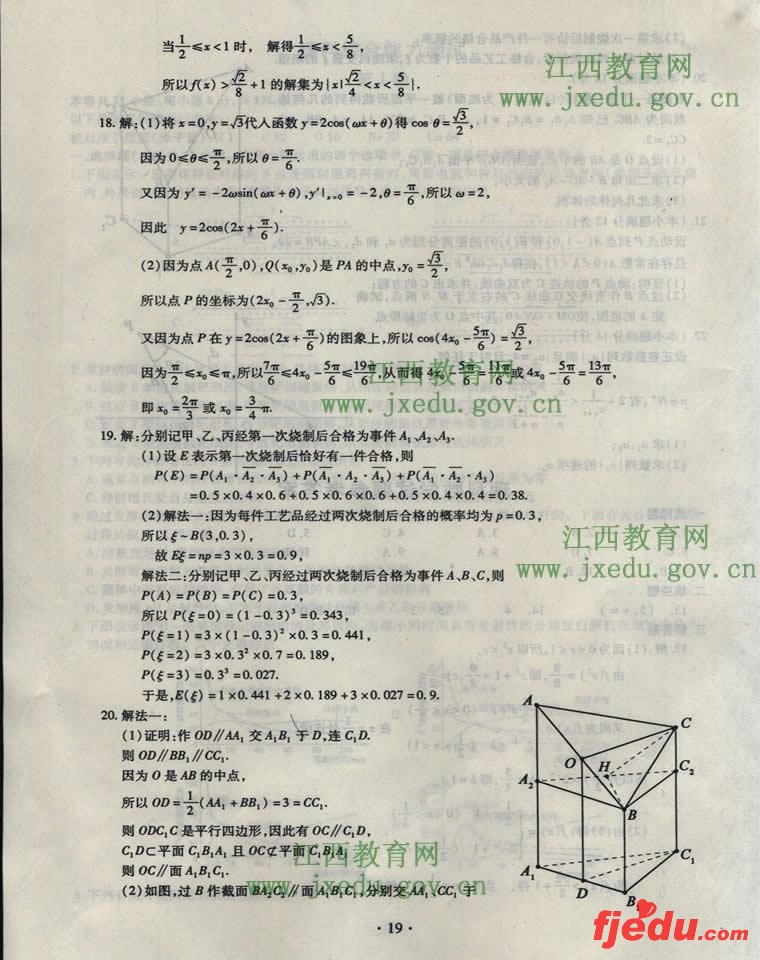 当1/2≤x<1时， 解得1/2≤x<5/8，
所以f(x)>√2/8+1的解集为{x|√2/4<x<5/8}.
江西教育网
www.jxedu.gov.cn
18.解:(1)将x=0,y=√3代入函数y=2cos(ωx+θ)得cos θ=√3/2,
因为0≤θ≤π/2,所以θ=π/6.
又因为y′=-2ωsin(ωx+θ),y′|x=0=-2,θ=π/6,所以ω=2,
因此 y=2cos(2x+π/6).
(2)因为点A(π/2,0),Q(x₀,y₀)是PA的中点,y₀=√3/2,
所以点P的坐标为(2x₀-π/2,√3).
又因为点P在y=2cos(2x+π/6)的图象上,所以cos(4x₀-5π/6)=√3/2,
因为π/2≤x₀≤π,所以7π/6≤4x₀-5π/6≤19π/6,从而得4x₀-5π/6=11π/6或4x₀-5π/6=13π/6,
江西教育网
即x₀=2π/3或x₀=3/4π.
www.jxedu.gov.cn
19.解:分别记甲、乙、丙经第一次烧制后合格为事件A₁、A₂、A₃.
(1)设E表示第一次烧制后恰好有一件合格,则
P(E)=P(A₁·A̅₂·A̅₃)+P(A̅₁·A₂·A̅₃)+P(A̅₁·A̅₂·A₃)
=0.5×0.4×0.6+0.5×0.6×0.6+0.5×0.4×0.4=0.38.
(2)解法一:因为每件工艺品经过两次烧制后合格的概率均为p=0.3,
所以ξ~B(3,0.3),
故Eξ=np=3×0.3=0.9,
江西教育网
www.jxedu.gov.cn
解法二:分别记甲、乙、丙经过两次烧制后合格为事件A、B、C,则
P(A)=P(B)=P(C)=0.3,
所以P(ξ=0)=(1-0.3)³=0.343,
P(ξ=1)=3×(1-0.3)²×0.3=0.441,
P(ξ=2)=3×0.3²×0.7=0.189,
P(ξ=3)=0.3³=0.027.
于是,E(ξ)=1×0.441+2×0.189+3×0.027=0.9.
20.解法一:
(1)证明:作OD∥AA₁交A₁B₁于D,连C₁D.
则OD∥BB₁∥CC₁.
因为O是AB的中点,
所以OD=1/2(AA₁+BB₁)=3=CC₁.
则ODC₁C是平行四边形,因此有OC∥C₁D,
C₁D⊂平面C₁B₁A₁且OC⊄平面C₁B₁A₁
则OC∥面A₁B₁C₁.
江西教育网
(2)如图,过B作截面BA₂C₂∥面A₁B₁C₁,分别交AA₁、CC₁于
www.jxedu.gov.cn
A
C
O
H
A₂
C₂
B
A₁
C₁
D
B₁
·19·
fjedu.com